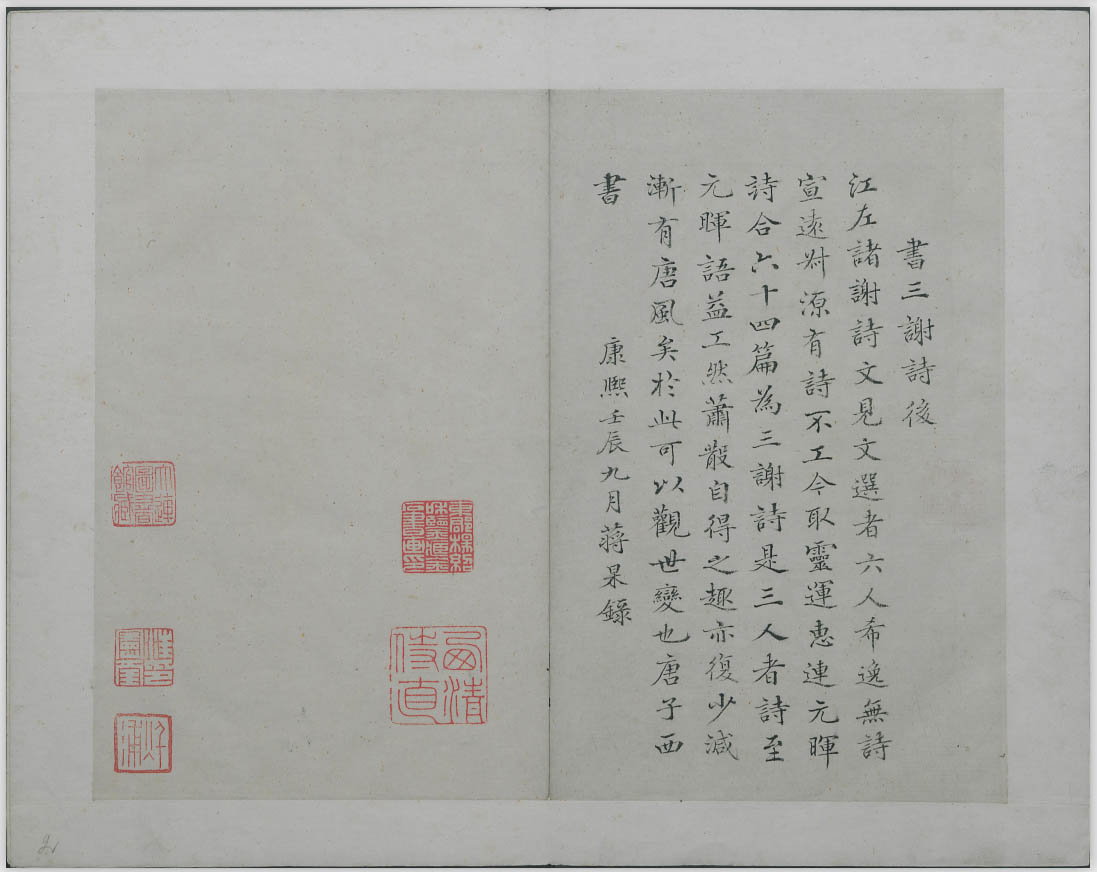 書三謝詩後
江左諸謝詩文見文選者六人希逸無詩
宣遠叔源有詩不工今取靈運惠連元暉
詩合六十四篇為三謝詩是三人者詩至
元暉語益工然蕭散自得之趣亦復少減
漸有唐風矣於此可以觀世變也唐子西
書
康熙壬辰九月蔣杲錄
西清侍直
大連圖書館藏